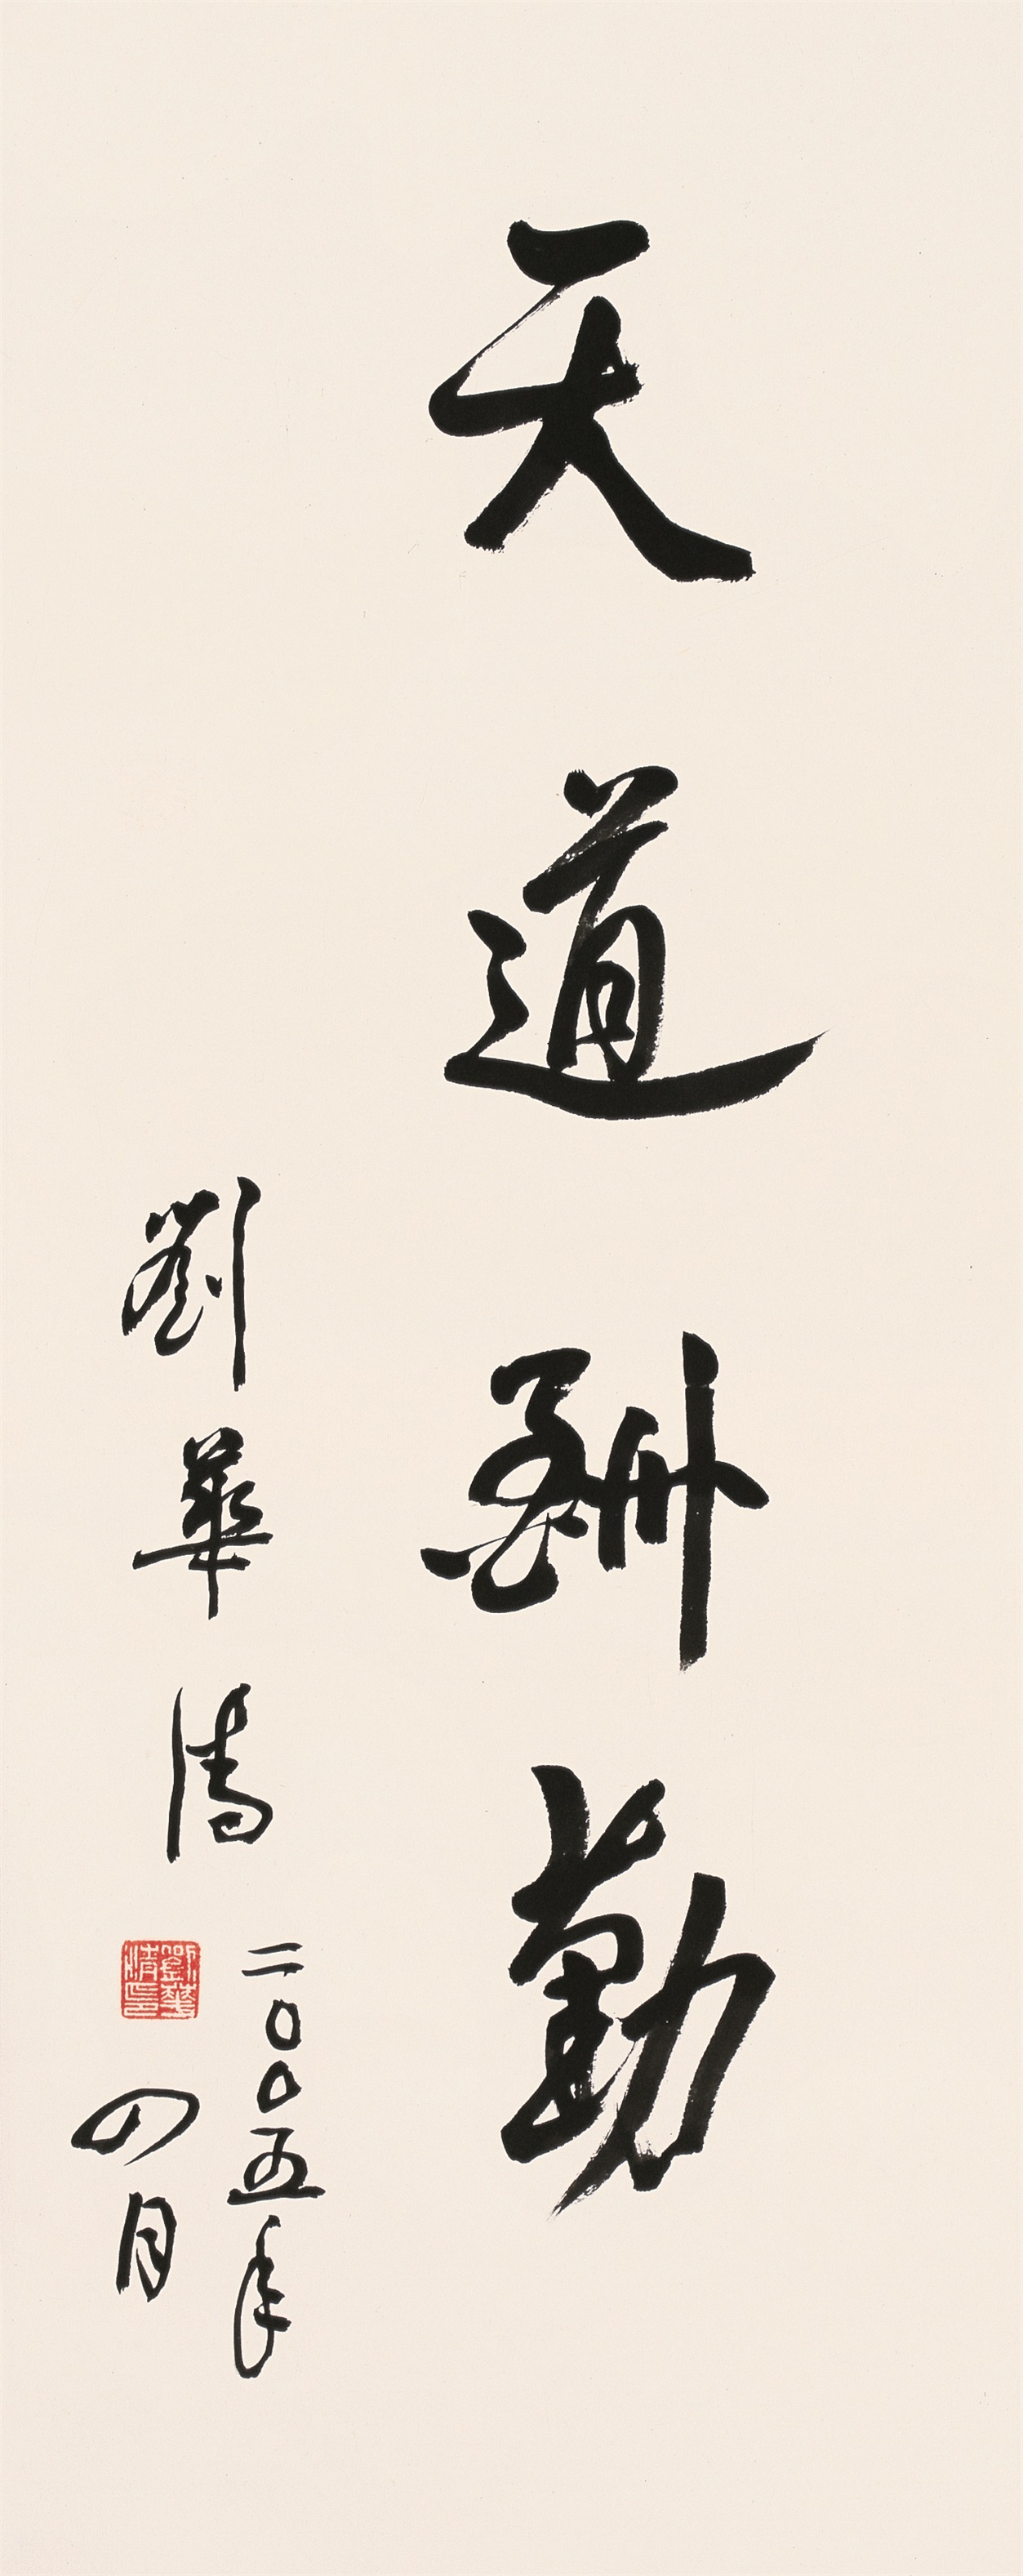 天道酬勤
劉華清
二〇〇五年
四月
劉華清印